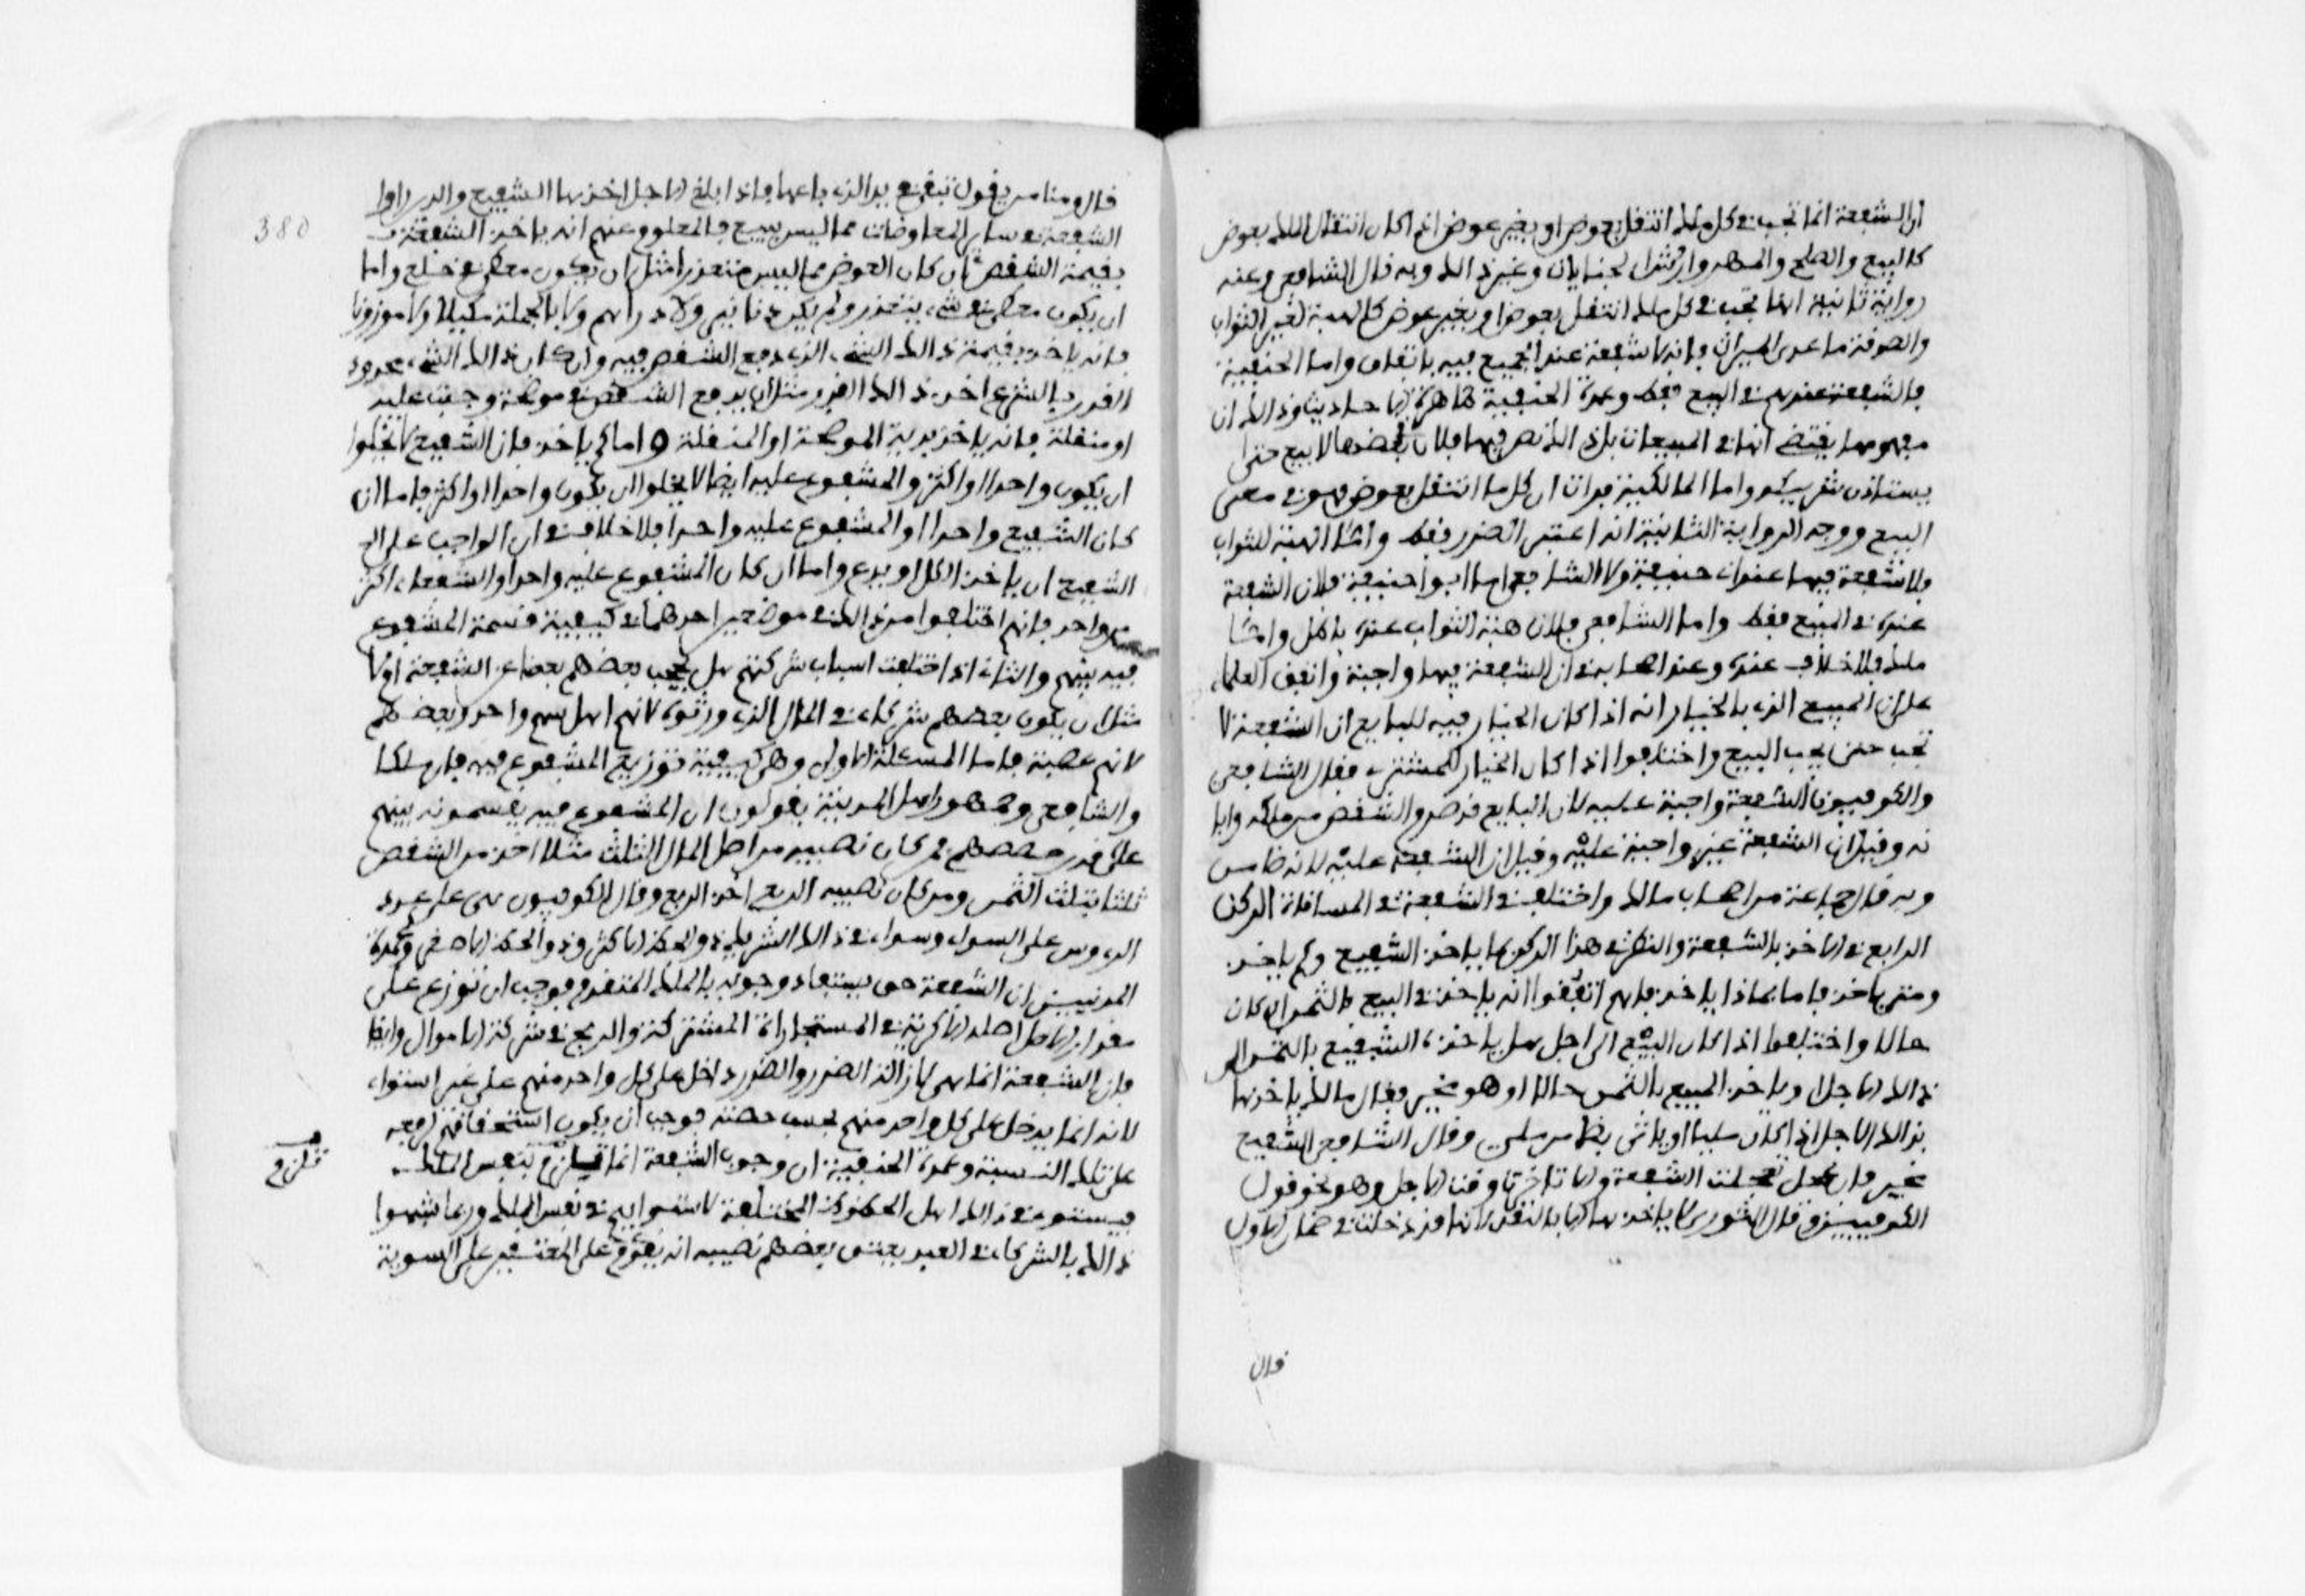 ان الشفعة انما تجب في كل ملك انتقل بعوض او بغير عوض اذا كان انتقال الملك بعوض
كالبيع والصلح والمهر وارش الجنايات وغير ذالك وبه قال الشافعي وعنه
رواية ثانية انها تجب في كل ملك انتقل بعوض او بغير عوض كالهبة لغير الثواب
والصدقة ما عدى الميراث فانه لا شفعة عند الجميع فيه باتفاق واما الحنفية
فالشفعة عندهم في البيع فقط وعمدة الحنفية ظاهر الاحاديث وذالك ان
مفهومها يقتضي انها في المبيعات بل ذالك نص فيها فلان بعضها لا يبيع حتى
يستاذن شريكه واما المالكية فرات ان كل ما انتقل بعوض فهو في معنى
البيع ووجه الرواية الثانية انه اعتبر الضرر فقط واما الهبة للثواب
فلا شفعة فيها عند ابي حنيفة ولا الشافعي اما ابو حنيفة فلان الشفعة
عنده في المبيع فقط واما الشافعي فلان هبة الثواب عنده باطل واما
ملك فلا خلاف عنده وعند اصحابه في ان الشفعة فيها واجبة واتفق العلماء
على ان المبيع الذي بالخيار انه اذا كان الخيار فيه للبايع ان الشفعة لا
تجب حتى يجب البيع واختلفوا اذا كان الخيار للمشتري فقال الشافعي
والكوفيون الشفعة واجبة عليه لان البايع قد صرم الشقص من ملكه وابا
نه وقيل ان الشفعة غير واجبة عليه وقيل ان الشفعة عليه لانه ضامن
وبه قال جماعة من اصحاب مالك واختلف في الشفعة في المساقاة الركن
الرابع في الاخذ بالشفعة والنظر في هذا الركن بما ياخذ الشفيع وكم ياخذ
ومتى ياخذ فاما بماذا ياخذ فانهم اتفقوا انه ياخذ في البيع بالثمن ان كان
حالا واختلفوا اذا كان البيع الى اجل هل ياخذه الشفيع بالثمن الى
ذالك الاجل او ياخذ المبيع بالثمن حالا او هو مخير فقال مالك ياخذ بها
بذالك الاجل اذا كان مليا او ياتي بضامن ملي وقال الشافعي الشفيع
مخير فان عجل تعجلت الشفعة والا تتاخر الى وقت الاجل وهو نحو قول
الكوفيين وقال الثوري لا ياخذها الا بالنقد لانها قد دخلت في ضمان الاول
قال
380
قال ومنا من يقول تبقى في يد الذي باعها فاذا بلغ الاجل اخذها الشفيع والذين راوا
الشفعة في ساير المعاوضات مما ليس ببيع فالمعلوم عنهم انه ياخذ الشفعة
بقيمة الشقص ان كان العوض مما ليس يتعذر مثل ان يكون معطى في خلع واما
ان يكون معطى في شيء يتعذر ولم يكن دنانير ولا دراهم ولا بالجملة مكيلا ولا موزونا
فانه ياخذ بقيمة ذالك الشيء الذي دفع الشقص فيه وان كان ذالك الشيء محدود
القدر بالشرع اخذ ذالك القدر مثل ان يدفع الشقص في موضحة وجبت عليه
او منقلة فانه ياخذ بدية الموضحة او المنقلة واما كم ياخذ فان الشفيع لا يخلوا
ان يكون واحدا او اكثر والمشفوع عليه ايضا لا يخلوا ان يكون واحدا او اكثر فاما ان
كان الشفيع واحدا او المشفوع عليه واحدا فلا خلاف في ان الواجب على ال
الشفيع ان ياخذ الكل او يدع واما ان كان المشفوع عليه واحدا والشفعاء اكثر
من واحد فانهم اختلفوا من ذالك في موضعين احدهما في كيفية قسمة المشفوع
فيه بينهم والثاني اذا اختلفت اسباب شركتهم هل يحجب بعضهم بعضا عن الشفعة ام لا
مثل ان يكون بعضهم شركاء في المال الذي ورثوه لانهم اهل سهم واحد وبعضهم
لانهم عصبة فاما المسئلة الاولى وهي كيفية توزيع المشفوع فيه فان ملكا
والشافعي وجمهور اهل المدينة يقولون ان المشفوع فيه يقسمونه بينهم
على قدر حصصهم فمن كان نصيبه من اصل المال الثلث مثلا اخذ من الشقص
ثلثا بثلث الثمن ومن كان نصيبه الربع اخذ الربع وقال الكوفيون هي على عدد
الرءوس على السواء وسواء في ذالك الشريك ذو الحظ الاكثر وذو الحظ الاصغر وعمدة
المدنيين ان الشفعة حق يستفاد وجوبه بالملك المتقدم فوجب ان يتوزع على
مقدار الاصل اصله الاكرية في المستجارات المشتركة والربح في شركة الاموال وايضا
فان الشفعة انما هي لازالة الضرر والضرر داخل على كل واحد منهم على غير استواء
لانه انما يدخل على كل واحد منهم بحسب حصته فوجب ان يكون استحقاقهم لدفعه
على تلك النسبة وعمدة الحنفية ان وجوب الشفعة انما تلزم بنفس الملك
تلزم
فيستوي في ذالك اهل الحظوظ المختلفة لاستوايهم في نفس الملك وربما شبهوا
ذالك بالشركاء في العبد يعتق بعضهم نصيبه انه يقوم على المعتقين على السوية